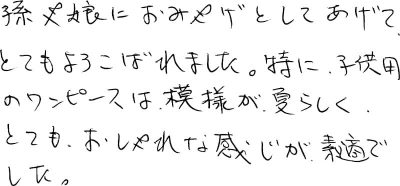 孫や娘におみやげとしてあげて、
とてもよろこばれました。特に、子供用
のワンピースは、模様が、夏らしく、
とても、おしゃれな感じが、素適で
した。